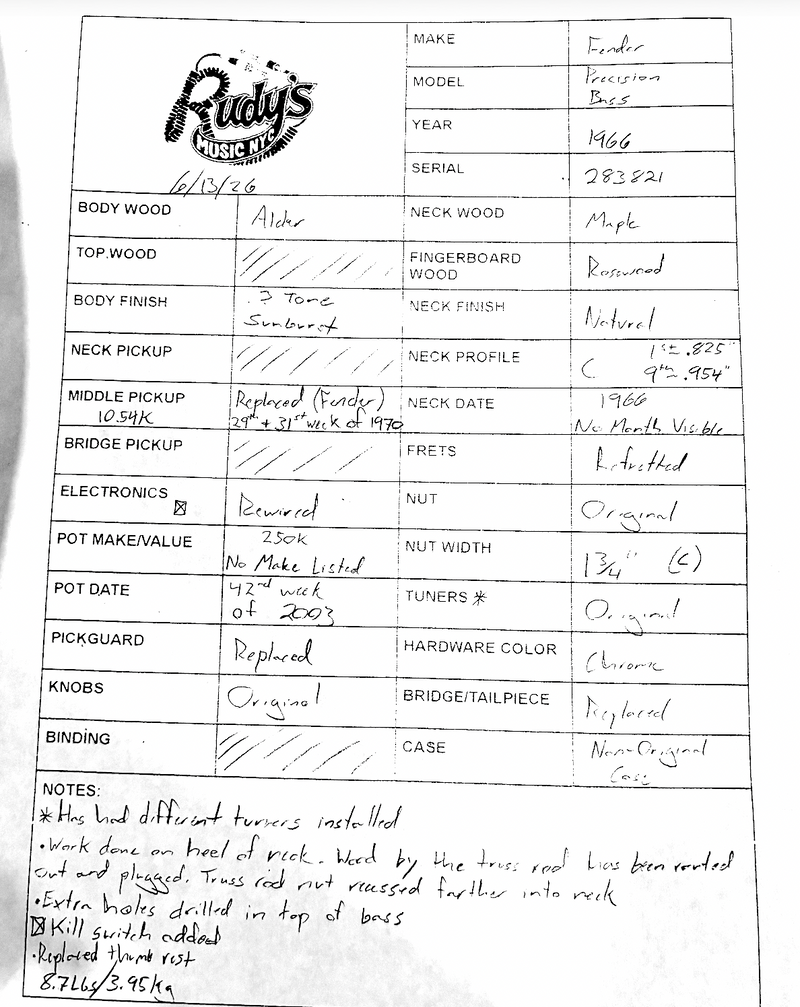 Rudy's
MUSIC NYC
6/13/26
MAKE Fender
MODEL Precision
Bass
YEAR 1966
SERIAL 283821
BODY WOOD Alder
NECK WOOD Maple
TOP WOOD
FINGERBOARD
WOOD Rosewood
BODY FINISH 3 Tone
Sunburst
NECK FINISH Natural
NECK PICKUP
NECK PROFILE C 1st ≈ .825"
9th ≈ .954"
MIDDLE PICKUP Replaced (Fender)
10.54K 29th + 31st week of 1970
NECK DATE 1966
No Month Visible
BRIDGE PICKUP
FRETS Refretted
ELECTRONICS ☒ Rewired
NUT Original
POT MAKE/VALUE 250K
No Make Listed
NUT WIDTH 1 3/4" (C)
POT DATE 42nd week
of 2003
TUNERS * Original
PICKGUARD Replaced
HARDWARE COLOR Chrome
KNOBS Original
BRIDGE/TAILPIECE Replaced
BINDING
CASE Non-Original
Case
NOTES:
* Has had different tuners installed
• Work done on heel of neck. Wood by the truss rod has been routed
out and plugged. Truss rod nut recessed farther into neck
• Extra holes drilled in top of bass
☒ Kill switch added
• Replaced thumb rest
8.7Lbs/3.95kg